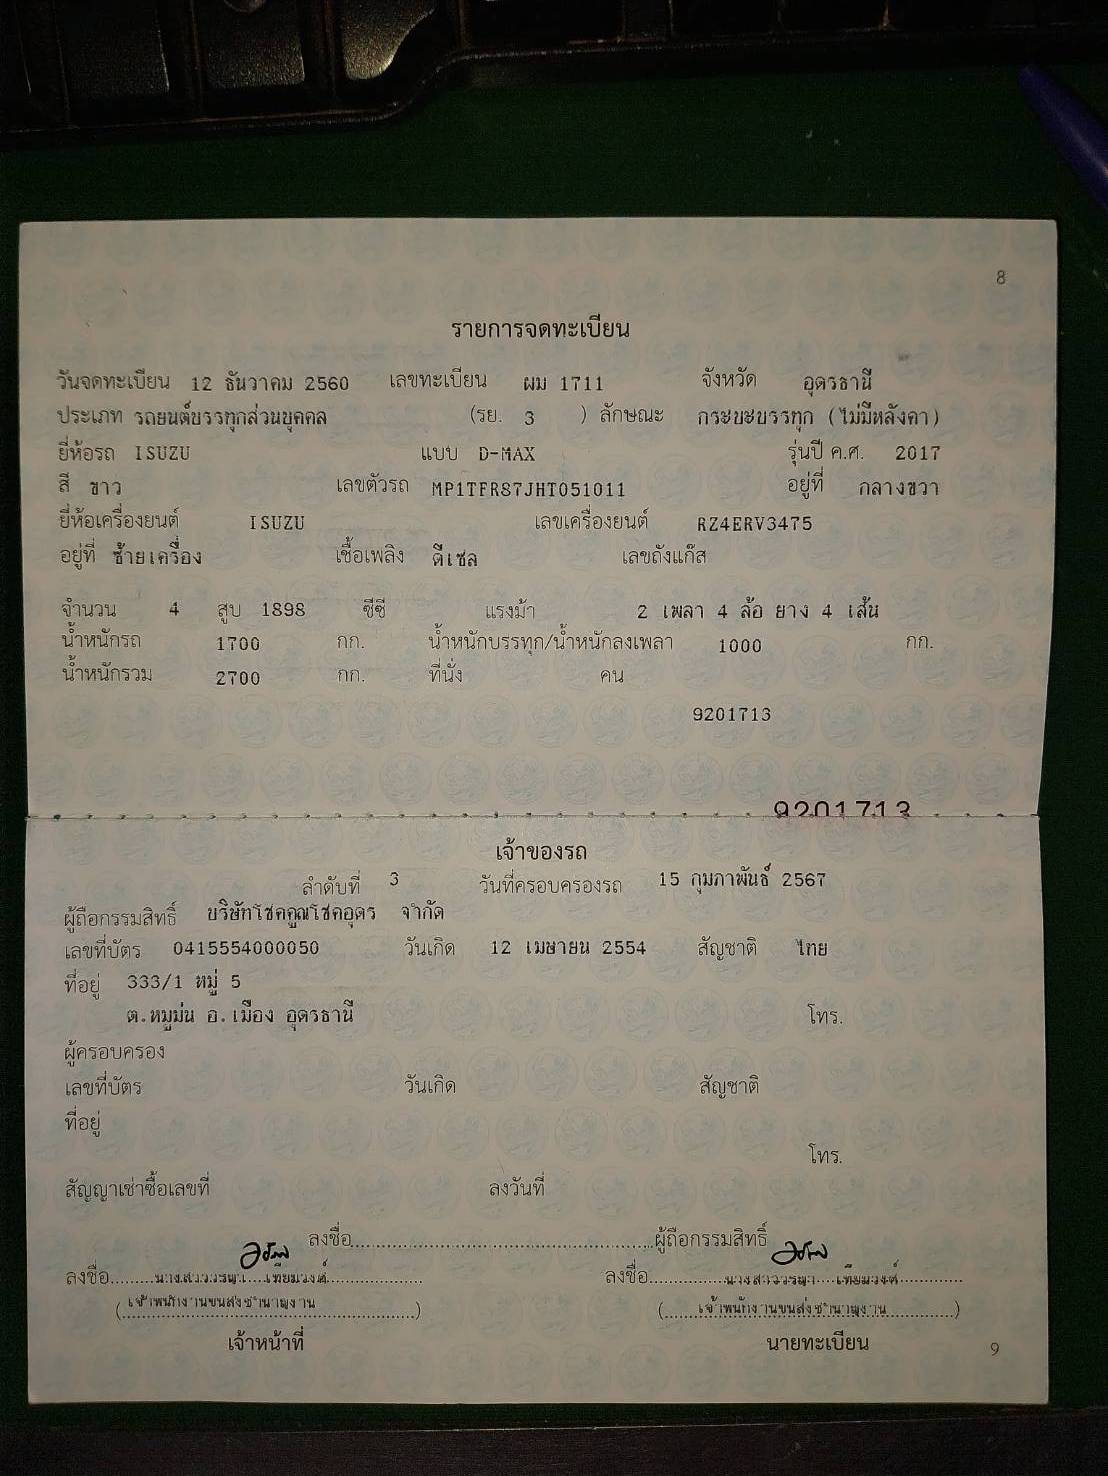 8
รายการจดทะเบียน
วันจดทะเบียน 12 ธันวาคม 2560 เลขทะเบียน ผม 1711 จังหวัด อุดรธานี
ประเภท รถยนต์บรรทุกส่วนบุคคล (รย. 3 ) ลักษณะ กระบะบรรทุก (ไม่มีหลังคา)
ยี่ห้อรถ ISUZU แบบ D-MAX รุ่นปี ค.ศ. 2017
สี ขาว เลขตัวรถ MP1TFR87JHT051011 อยู่ที่ กลางขวา
ยี่ห้อเครื่องยนต์ ISUZU เลขเครื่องยนต์ RZ4ERV3475
อยู่ที่ ซ้ายเครื่อง เชื้อเพลิง ดีเซล เลขถังแก๊ส
จำนวน 4 สูบ 1898 ซีซี แรงม้า 2 เพลา 4 ล้อ ยาง 4 เส้น
น้ำหนักรถ 1700 กก. น้ำหนักบรรทุก/น้ำหนักลงเพลา 1000 กก.
น้ำหนักรวม 2700 กก. ที่นั่ง คน
9201713
9201713
เจ้าของรถ
ลำดับที่ 3 วันที่ครอบครองรถ 15 กุมภาพันธ์ 2567
ผู้ถือกรรมสิทธิ์ บริษัทโชคคูณโชคอุดร จำกัด
เลขที่บัตร 0415554000050 วันเกิด 12 เมษายน 2554 สัญชาติ ไทย
ที่อยู่ 333/1 หมู่ 5
ต.หมูม่น อ.เมือง อุดรธานี โทร.
ผู้ครอบครอง
เลขที่บัตร วันเกิด สัญชาติ
ที่อยู่
โทร.
สัญญาเช่าซื้อเลขที่ ลงวันที่
ลงชื่อ ผู้ถือกรรมสิทธิ์
ลงชื่อ เทียมวงค์ ลงชื่อ เทียมวงค์
(เจ้าพนักงานขนส่งชำนาญงาน) (เจ้าพนักงานขนส่งชำนาญงาน)
เจ้าหน้าที่ นายทะเบียน
9